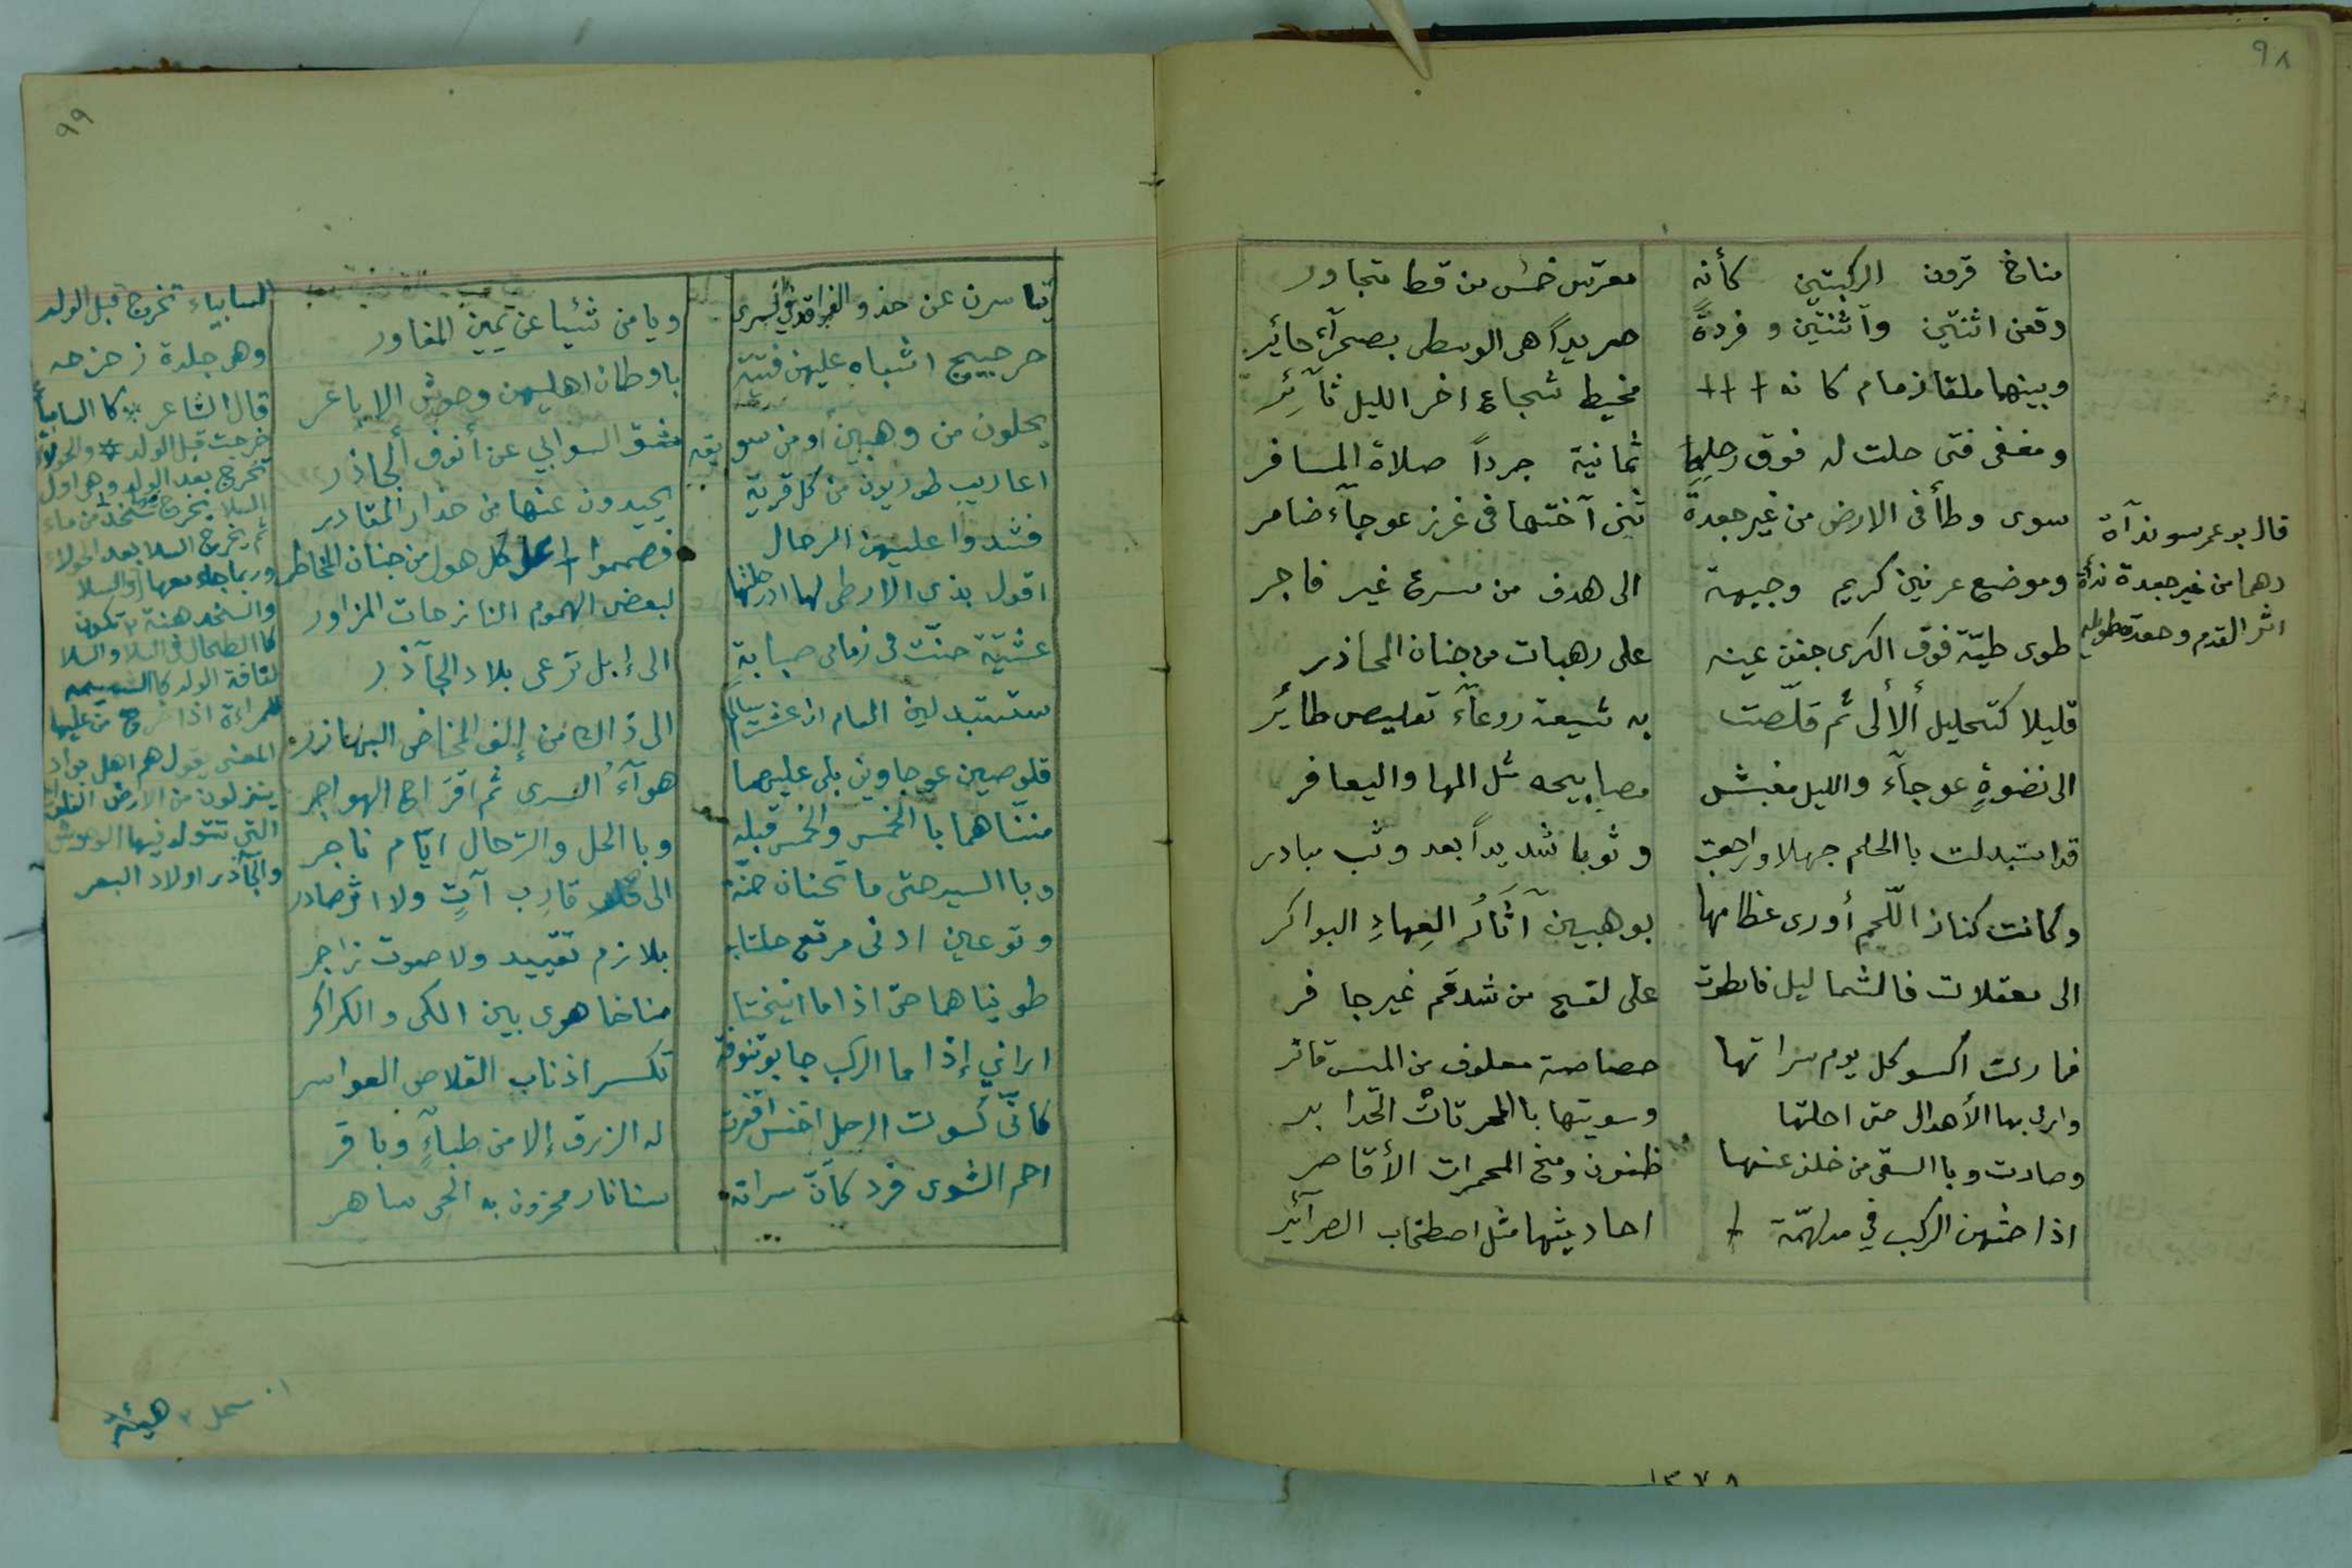 ٩٨
مناخ قرون الركبتين كأنه معرس خمس من قطا متجاور
وقعن اثنتين وآثنتين وفردةً صريداً هى الوسطى بصحرآء حائر
وبينهما ملقا زمام كانه +++ مخيط شجاع اخر الليل ثآئر
ومغفى فتى حلت له فوق رحلها ثمانية جرداً صلاة المسافر
سوى وطأ فى الارض من غير جعدة ثنى آختها فى غرز عوجآء ضامر
وموضع عرنين كريم وجبهة الى هدف من مسرع غير فاجر
طوى طيّة فوق الكرى جفن عينه على رهبات من جنان المحاذر
قليلا كتحليل ألألى ثم قلّصت به شيعة روعآء تقليص طائر
الى نضوةٍ عوجآء والليل مغبش مصابيحه مثل المها واليعافر
قد استبدلت باالحلم جهلا وراجعت وثوبا شديداً بعد وثب مبادر
وكانت كناز اللّحم أورى عظامها بوهبين آثَارُ العِهادِ البواكر
الى معقلات فالشماليل فانطوت على لقح من شدقم غير جافر
فما زلت اكسو كل يوم سراتها خصاصة معلوف من الميس قاتر
وارمى بها الأهوال حتى احلتها وسويتها باالمحرثات الحدابر
وصارت وباالسقى من خلف عنها ظنون ومخ المجمرات الأقاصر
اذا حثهن الركب في مدلهمّة + احاديثها مثل اصطخاب الصرآئر
قال بوعمر سو ندآة
دهما من غير جعدة ندأة
اثر القدم وجعدة
١٣٧٨
٩٩
تياسرن عن حذو الفراقد في السرى ويامن شيئا عن يمين المغاور
حراجيج اشباه عليهن فتية باوطان اهليهن وحوش الاباعر
يحلون من وهبين أو من سويقه مشق السوابي عن أنوف الجاذر
اعاريب طوريون من كل قرية يحيدون عنها من حذار المقادر
فشدوا عليهن الرحال فصمموا على كل هول من جنان المخاطر
اقول بذى الارطى لها اذ رحلتها لبعض الهموم النازحات المزاور
عشيّة حنّت فى زمامى صبابةٍ الى إبل ترعى بلاد الجآذر
ستستبدلين العام ان عشت سالما الى ذاك من إلف المخاض البهازر
قلوصين عوجاوين بلى عليهما هوآءُ السرى ثم اقتراح الهواجر
مننّاهما باالخمس والخمس قبله وباالحل والترحال ايّام ناجر
وباالسير حتى ما تحنان حنّة الى قارب آتٍ ولا اثر صادر
وترعين ادنى مرتع حلتا به بلا زم تقييد ولا صوت زاجر
طويناهما حتى اذا ما انيختا مناخا هوى بين الكلى والكراكر
اراني إذا ما الركب جابو تنوفة تكسر اذناب القلاص العواسر
كأنّى كسوت الرحل اخنس اقفرت له الزرق إلا من ظباءٍ وباقر
احم الشوى فرد كأنّ سراته سنا نار محزون به الحى ساهر
السابياء تخرج قبل الولد
وهى جلدة
قال الشاعر * كاالسابيا
خرجت قبل الولد * والحولاء
تخرج بعد الولد وهى اول
السلا يخرج من ماء
ثم يخرج السلا بعد الحولاء
وربما جاء معها والسلا
والسخد هنة ٢ تكون
كاالطحال فى السلا والسلا
لفافة الولد
للمرأة اذا خرج من عليها
المعنى يقول هم اهل بواد
ينزلون من الارض
التى تتولد فيها الوحوش
والجآذر اولاد البقر
٢ هيئة